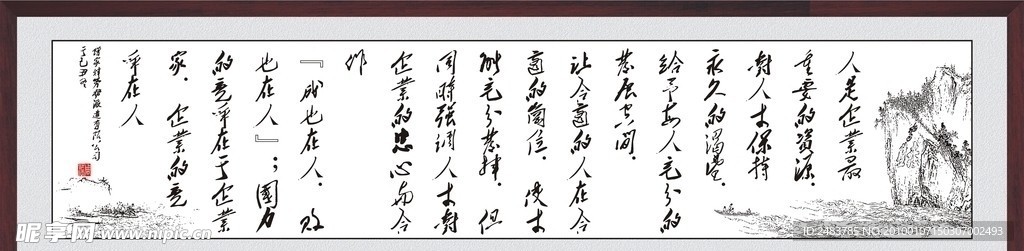 人是企業最
重要的資源，
對人才保持
永久的渴望，
給予每人充分的
發展空間，
讓合適的人在合
適的崗位，使才
能充分發揮，但
同時强調人才對
企業的忠心與合
作
『成也在人，敗
也在人』；國力
的竞争在于企業
家，企業的竞
争在人
有限公司
昵享网 www.nipic.cn
ID:2483785 NO:20100107150307002493